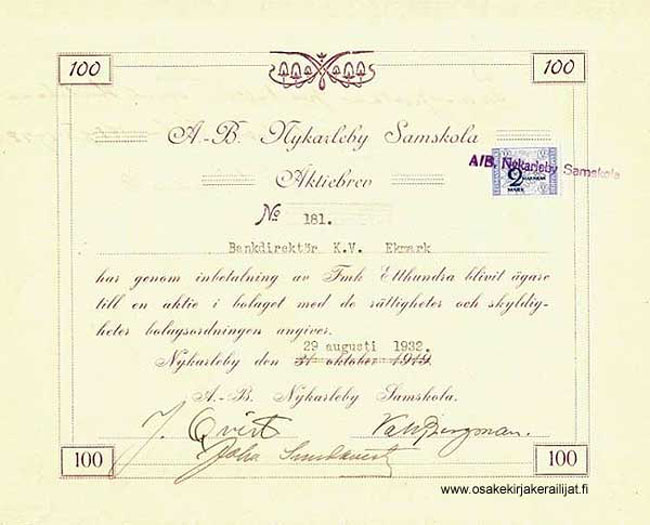 100 100
A.-B. Nykarleby Samskola
A/B. Nykarleby Samskola
2
MARK
Aktiebrev
No 181.
Bankdirektör K.V. Ekmark
har genom inbetalning av Fmk Etthundra blivit ägare
till en aktie i bolaget med de rättigheter och skyldig-
heter bolagsordningen angiver.
29 augusti 1932.
Nykarleby den 31 oktober 1919.
A.-B. Nykarleby Samskola.
J. Qvist Bergman.
100 100
www.osakekirjakerailijat.fi